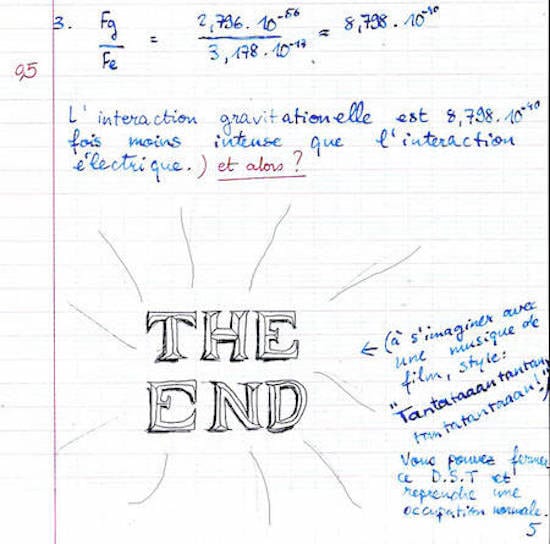 3. Fg / Fe = 2,796.10⁻⁵⁶ / 3,178.10⁻¹⁷ ≈ 8,798.10⁻⁴⁰
0,5
L'interaction gravitationelle est 8,798.10⁻⁴⁰
fois moins intense que l'interaction
électrique.) et alors ?
THE
END
← (à s'imaginer avec
une musique de
film, style:
"Tantataaantantan,
tantatantaaan!")
Vous pouvez fermer
ce D.S.T et
reprendre une
occupation normale.
5